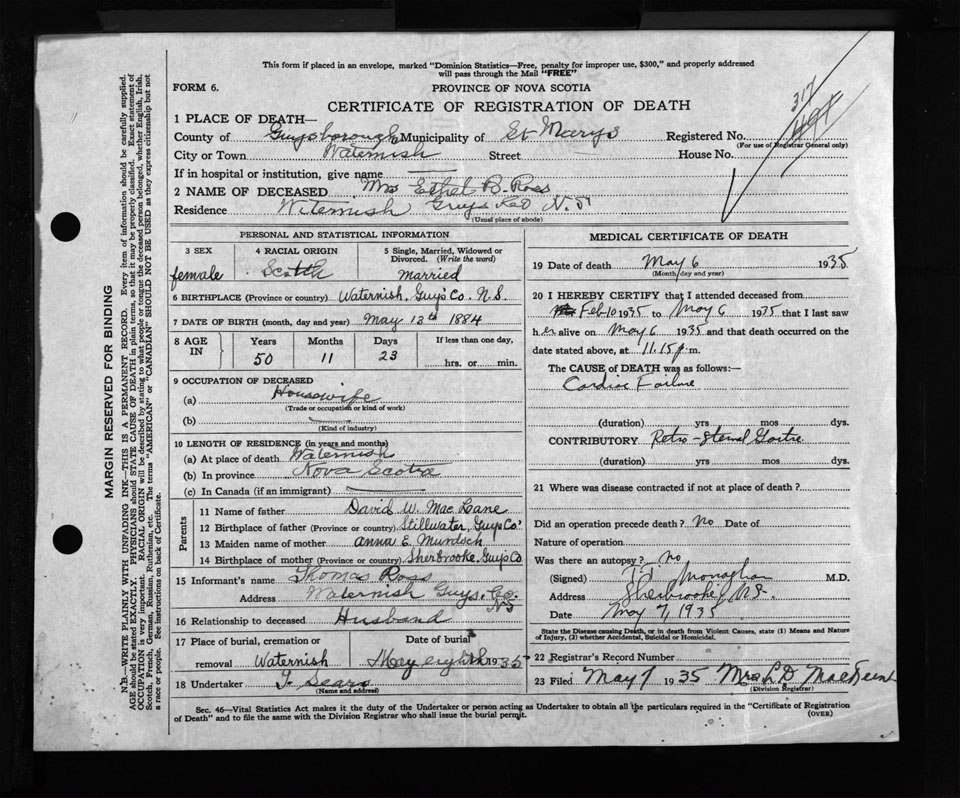 This form if placed in an envelope, marked "Dominion Statistics—Free, penalty for improper use, $300," and properly addressed
will pass through the Mail "FREE"
FORM 6.
PROVINCE OF NOVA SCOTIA
CERTIFICATE OF REGISTRATION OF DEATH
317
1 PLACE OF DEATH—
County of Guysborough Municipality of St Marys Registered No.
(For use of Registrar General only)
City or Town Waternish Street House No.
If in hospital or institution, give name
2 NAME OF DECEASED Mrs Ethel B. Ross
Residence Witernish Guys Co N.S
(Usual place of abode)
PERSONAL AND STATISTICAL INFORMATION
3 SEX 4 RACIAL ORIGIN 5 Single, Married, Widowed or
Divorced. (Write the word)
female Scotch married
6 BIRTHPLACE (Province or country) Waternish, Guys' Co. N.S.
7 DATE OF BIRTH (month, day and year) May 13th 1884
8 AGE IN Years Months Days If less than one day,
50 11 23 hrs. or min.
9 OCCUPATION OF DECEASED
(a) Housewife
(Trade or occupation or kind of work)
(b)
(Kind of industry)
10 LENGTH OF RESIDENCE (in years and months)
(a) At place of death Waternish
(b) In province Nova Scotia
(c) In Canada (if an immigrant)
Parents
11 Name of father David W. MacLane
12 Birthplace of father (Province or country) Stillwater, Guys Co'
13 Maiden name of mother Anna E. Murdoch
14 Birthplace of mother (Province or country) Sherbrooke, Guy's Co
15 Informant's name Thomas Ross
Address Waternish Guys. Co.
NS
16 Relationship to deceased Husband
17 Place of burial, cremation or Date of burial
removal Waternish May eighth 1935
18 Undertaker T. Sears
(Name and address)
MEDICAL CERTIFICATE OF DEATH
19 Date of death May 6 1935
(Month, day and year)
20 I HEREBY CERTIFY that I attended deceased from
Feb 10 1935 to May 6 1935 that I last saw
her alive on May 6 1935 and that death occurred on the
date stated above, at 11.15 p.m.
The CAUSE of DEATH was as follows:—
Cardiac Failure
(duration) yrs mos dys.
CONTRIBUTORY Retro-sternal Goitre
(duration) yrs mos dys.
21 Where was disease contracted if not at place of death?
Did an operation precede death? No Date of
Nature of operation
Was there an autopsy? No
(Signed) Monaghan M.D.
Address Sherbrooke, N.S.
Date May 7, 1935
State the Disease causing Death, or in death from Violent Causes, state (1) Means and Nature
of Injury, (2) whether Accidental, Suicidal or Homicidal.
22 Registrar's Record Number
23 Filed May 7 1935 Mrs L D
(Division Registrar)
Sec. 46—Vital Statistics Act makes it the duty of the Undertaker or person acting as Undertaker to obtain all the particulars required in the "Certificate of Registration
of Death" and to file the same with the Division Registrar who shall issue the burial permit.
(OVER)
MARGIN RESERVED FOR BINDING
N.B.—WRITE PLAINLY WITH UNFADING INK—THIS IS A PERMANENT RECORD. Every item of information should be carefully supplied.
AGE should be stated EXACTLY. PHYSICIANS should STATE CAUSE OF DEATH in plain terms, so that it may be properly classified. Exact statement of
OCCUPATION is very important. RACIAL ORIGIN will be described by stating to what people or tongue the deceased person belonged, whether English, Irish,
Scotch, French, German, Russian, Ruthenian, etc. The terms "AMERICAN" or "CANADIAN" SHOULD NOT BE USED as they express citizenship but not
a race or people. See instructions on back of Certificate.